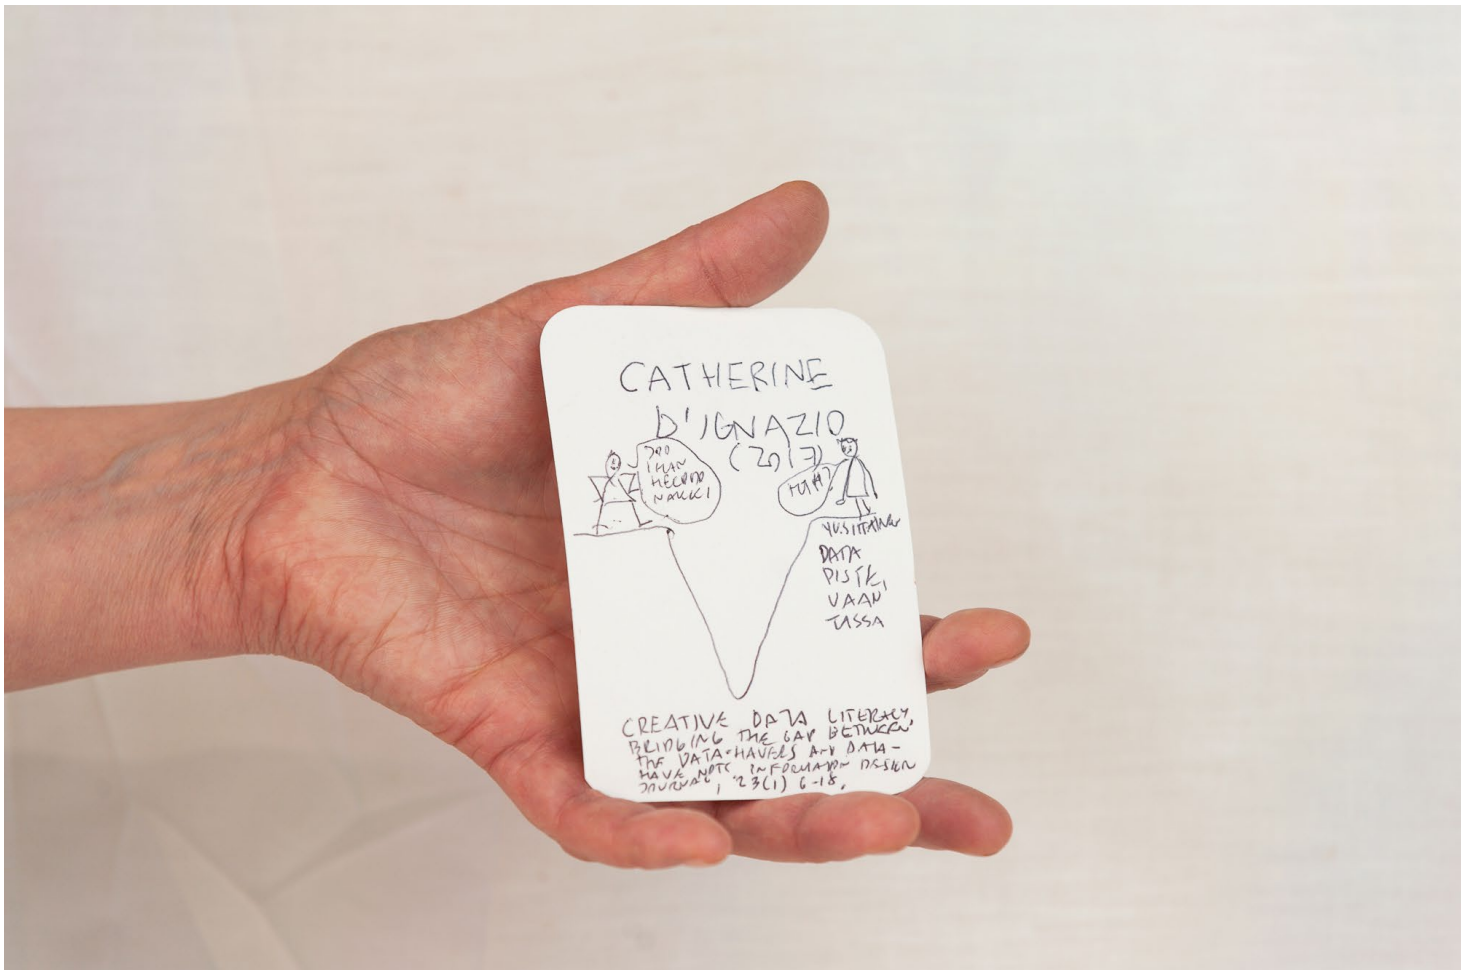 CATHERINE
D'IGNAZIO
(2017)
JOO
IHAN
HELPPO
NAKKI
HÄH?
DATA
PISTE,
VAAN
TÄSSÄ
CREATIVE DATA LITERACY,
BRIDGING THE GAP BETWEEN
THE DATA-HAVERS AND DATA-
HAVE NOTS INFORMATION DESIGN
JOURNAL, 23(1) 6-18.